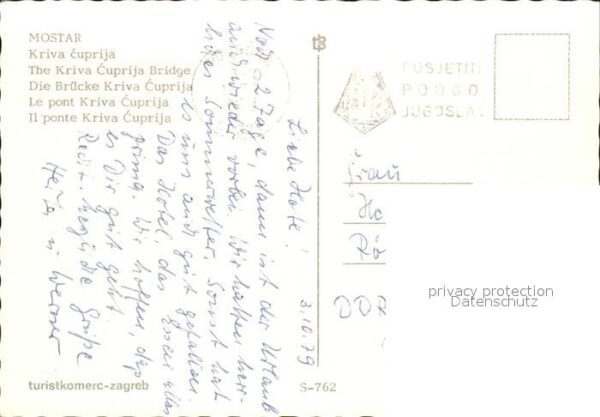 MOSTAR
Kriva ćuprija
The Kriva Ćuprija Bridge
Die Brücke Kriva Ćuprija
Le pont Kriva Ćuprija
Il ponte Kriva Ćuprija
POSJETITE
JUGOSLA
3.10.79
Liebe Hote!
Noch 2 Tage, dann ist der Urlaub
auch wieder vorbei. Wir hatten herr-
liches Sommerwetter. Sonst hat
es uns auch gut gefallen.
Das Hotel, das Essen alles
prima. Wir hoffen, daß
es Dir gut geht.
Recht herzliche Grüße
Werner
Frau
Ho
DDR
privacy protection
Datenschutz
turistkomerc-zagreb
S-762